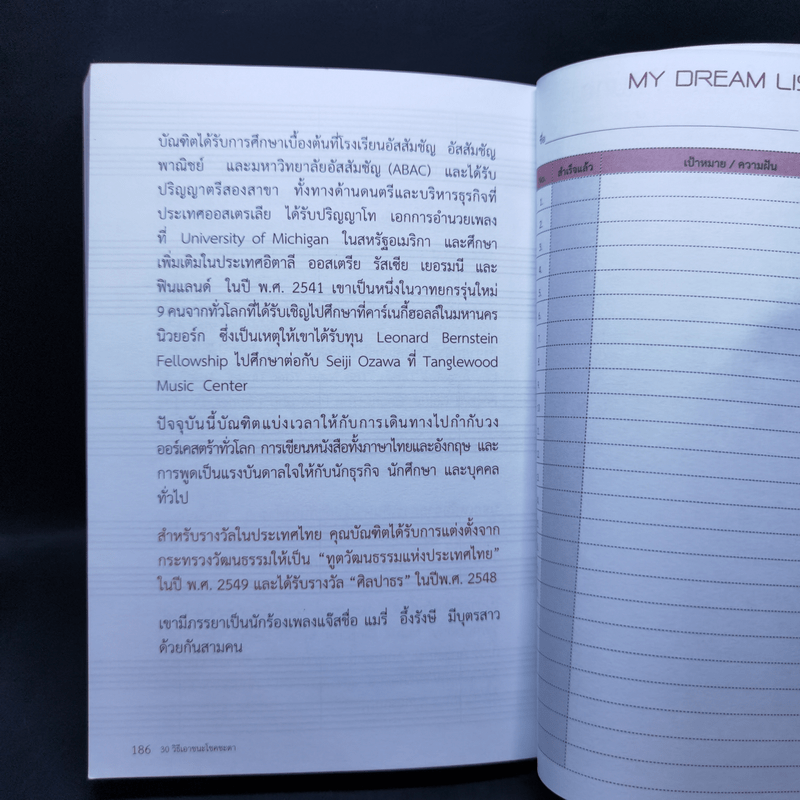 บัณฑิตได้รับการศึกษาเบื้องต้นที่โรงเรียนอัสสัมชัญ อัสสัมชัญ
พาณิชย์ และมหาวิทยาลัยอัสสัมชัญ (ABAC) และได้รับ
ปริญญาตรีสองสาขา ทั้งทางด้านดนตรีและบริหารธุรกิจที่
ประเทศออสเตรเลีย ได้รับปริญญาโท เอกการอำนวยเพลง
ที่ University of Michigan ในสหรัฐอเมริกา และศึกษา
เพิ่มเติมในประเทศอิตาลี ออสเตรีย รัสเซีย เยอรมนี และ
ฟินแลนด์ ในปี พ.ศ. 2541 เขาเป็นหนึ่งในวาทยกรรุ่นใหม่
9 คนจากทั่วโลกที่ได้รับเชิญไปศึกษาที่คาร์เนกี้ฮอลล์ในมหานคร
นิวยอร์ก ซึ่งเป็นเหตุให้เขาได้รับทุน Leonard Bernstein
Fellowship ไปศึกษาต่อกับ Seiji Ozawa ที่ Tanglewood
Music Center
ปัจจุบันนี้บัณฑิตแบ่งเวลาให้กับการเดินทางไปกำกับวง
ออร์เคสตร้าทั่วโลก การเขียนหนังสือทั้งภาษาไทยและอังกฤษ และ
การพูดเป็นแรงบันดาลใจให้กับนักธุรกิจ นักศึกษา และบุคคล
ทั่วไป
สำหรับรางวัลในประเทศไทย คุณบัณฑิตได้รับการแต่งตั้งจาก
กระทรวงวัฒนธรรมให้เป็น “ทูตวัฒนธรรมแห่งประเทศไทย”
ในปี พ.ศ. 2549 และได้รับรางวัล “ศิลปาธร” ในปีพ.ศ. 2548
เขามีภรรยาเป็นนักร้องเพลงแจ๊สชื่อ แมรี่ อึ้งรังษี มีบุตรสาว
ด้วยกันสามคน
186 30 วิธีเอาชนะโชคชะตา
MY DREAM LIS
ชื่อ
No. สำเร็จแล้ว เป้าหมาย / ความฝัน
1.
2.
3.
4.
5.
6.
7.
8.
9.
10.
11.
12.
13.